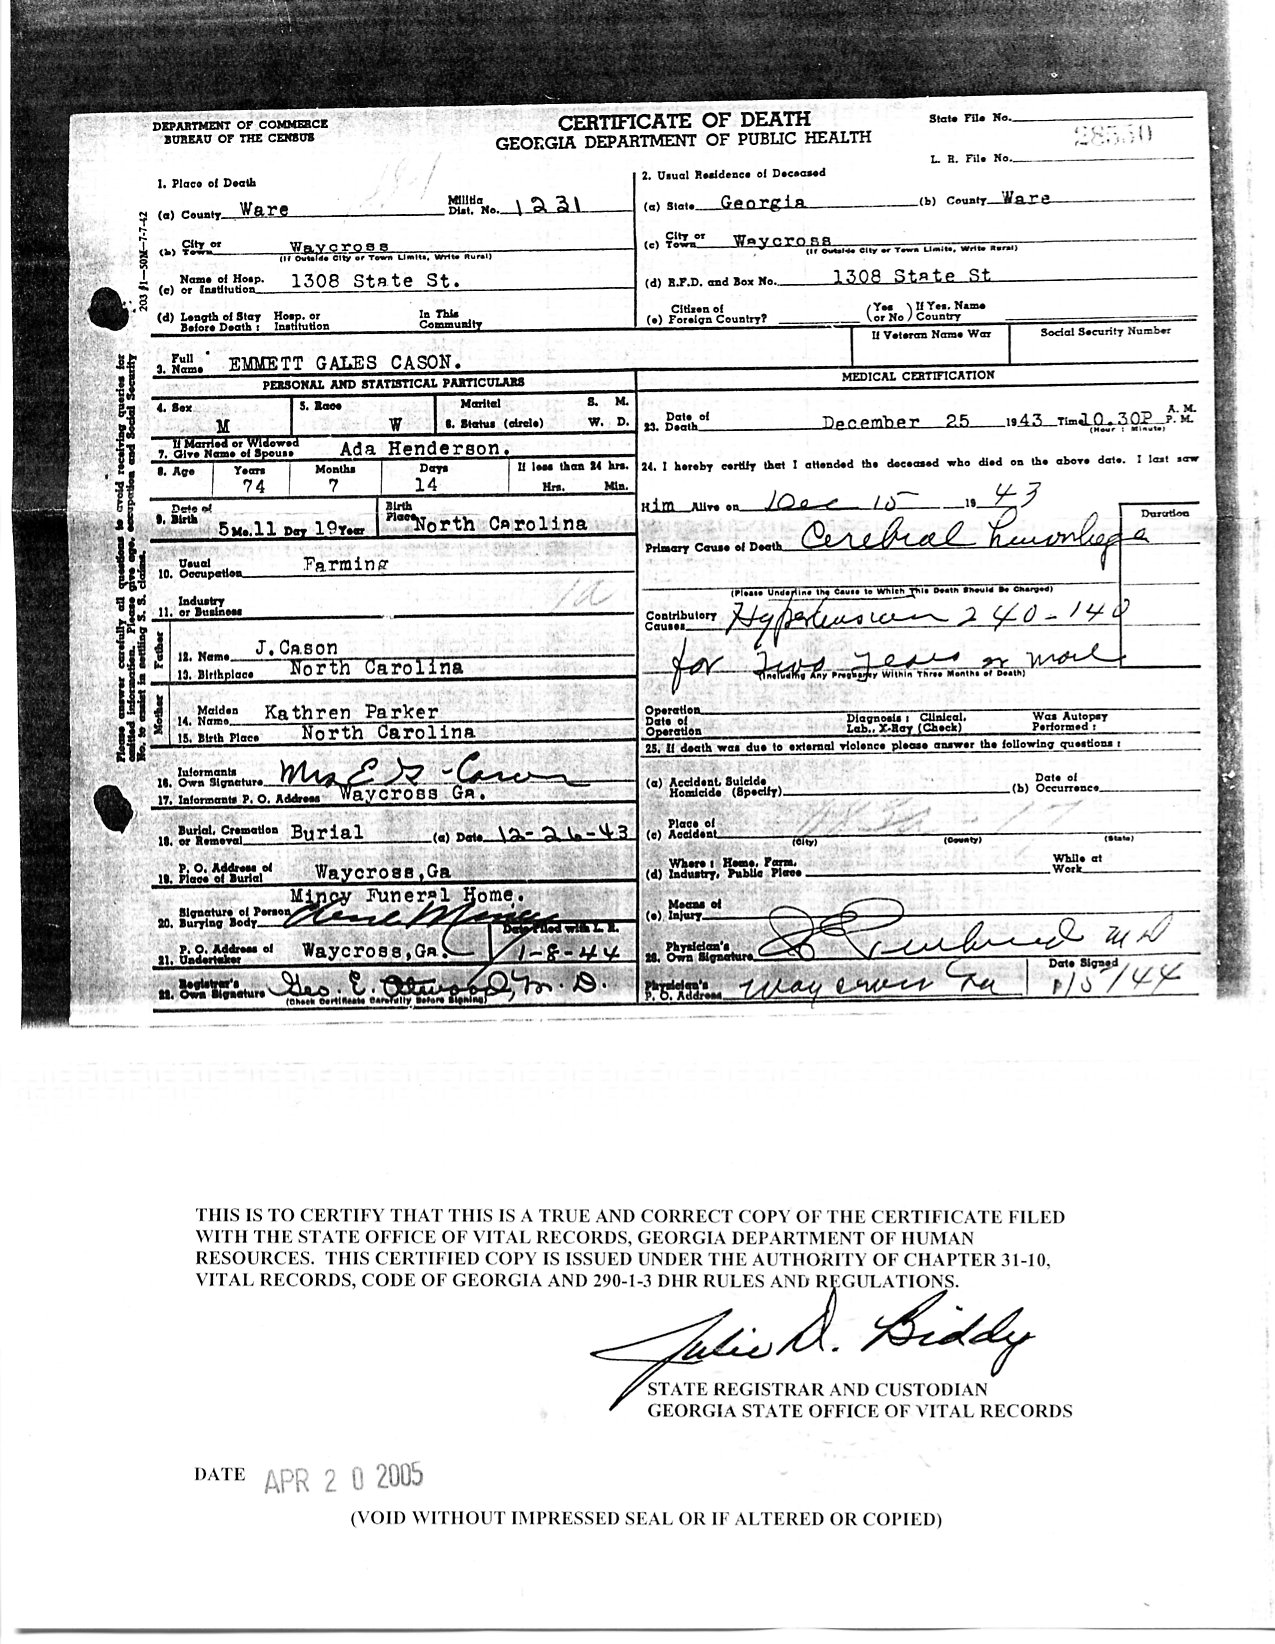 DEPARTMENT OF COMMERCE
BUREAU OF THE CENSUS
CERTIFICATE OF DEATH
GEORGIA DEPARTMENT OF PUBLIC HEALTH
State File No. 28550
L. R. File No.
203 #1—50M—7-7-42
Please answer carefully all questions to avoid receiving queries for
omitted information. Please give age, occupation and Social Security
No. to assist in settling S. S. claims.
1. Place of Death
(a) County Ware Militia Dist. No. 1231
(b) City or Town Waycross
(If Outside City or Town Limits, Write Rural)
(c) Name of Hosp. or Institution 1308 State St.
(d) Length of Stay Before Death: Hosp. or Institution In This Community
2. Usual Residence of Deceased
(a) State Georgia (b) County Ware
(c) City or Town Waycross
(If Outside City or Town Limits, Write Rural)
(d) R.F.D. and Box No. 1308 State St
(e) Citizen of Foreign Country? (Yes or No) If Yes, Name Country
3. Full Name EMMETT GALES CASON.
If Veteran Name War
Social Security Number
PERSONAL AND STATISTICAL PARTICULARS
4. Sex M
5. Race W
6. Marital Status (circle) S. M. W. D.
7. If Married or Widowed Give Name of Spouse Ada Henderson.
8. Age Years 74 Months 7 Days 14 If less than 24 hrs. Hrs. Min.
9. Date of Birth 5 Mo. 11 Day 19 Year Birth Place North Carolina
10. Usual Occupation Farming
11. Industry or Business
Father
12. Name J.Cason
13. Birthplace North Carolina
Mother
14. Maiden Name Kathren Parker
15. Birth Place North Carolina
16. Informants Own Signature Mrs E G Cason
17. Informants P. O. Address Waycross Ga.
18. Burial, Cremation or Removal Burial (a) Date 12-26-43
19. P. O. Address of Place of Burial Waycross,Ga
Mincy Funeral Home.
20. Signature of Person Burying Body
21. P. O. Address of Undertaker Waycross,Ga. Date Filed with L. R. 1-8-44
22. Registrar's Own Signature Geo. E. Atwood, M. D.
(Check Certificate Carefully Before Signing)
MEDICAL CERTIFICATION
23. Date of Death December 25 1943 Time 10.30P A. M. P. M.
(Hour : Minute)
24. I hereby certify that I attended the deceased who died on the above date. I last saw
Him Alive on Dec 15 1943
Duration
Primary Cause of Death Cerebral hemorhage
(Please Underline the Cause to Which This Death Should Be Charged)
Contributory Causes Hypertension 240-140
for two years or more
(Including Any Pregnancy Within Three Months of Death)
Operation
Date of Operation Diagnosis: Clinical, Lab., X-Ray (Check) Was Autopsy Performed:
25. If death was due to external violence please answer the following questions:
(a) Accident, Suicide Homicide (Specify) (b) Date of Occurrence
(c) Place of Accident
(City) (County) (State)
(d) Where: Home, Farm, Industry, Public Place While at Work
(e) Means of Injury
26. Physician's Own Signature M D
Physician's P. O. Address Waycross Ga Date Signed 1/5/44
THIS IS TO CERTIFY THAT THIS IS A TRUE AND CORRECT COPY OF THE CERTIFICATE FILED
WITH THE STATE OFFICE OF VITAL RECORDS, GEORGIA DEPARTMENT OF HUMAN
RESOURCES. THIS CERTIFIED COPY IS ISSUED UNDER THE AUTHORITY OF CHAPTER 31-10,
VITAL RECORDS, CODE OF GEORGIA AND 290-1-3 DHR RULES AND REGULATIONS.
Julie D. Biddy
STATE REGISTRAR AND CUSTODIAN
GEORGIA STATE OFFICE OF VITAL RECORDS
DATE APR 20 2005
(VOID WITHOUT IMPRESSED SEAL OR IF ALTERED OR COPIED)